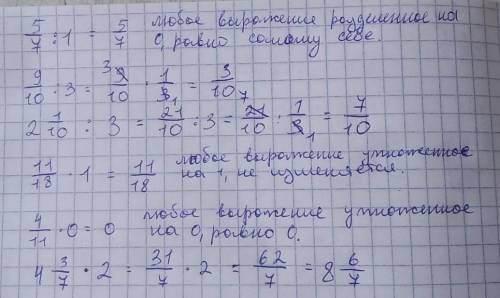 5/7 : 1 = 5/7 любое выражение разделенное на 0, равно самому себе.
9/10 : 3 = 9/10 · 1/3 = 3/10
2 1/10 : 3 = 21/10 : 3 = 21/10 · 1/3 = 7/10
11/18 · 1 = 11/18 любое выражение умноженное на 1, не изменяется.
4/11 · 0 = 0 любое выражение умноженное на 0, равно 0.
4 3/7 · 2 = 31/7 · 2 = 62/7 = 8 6/7